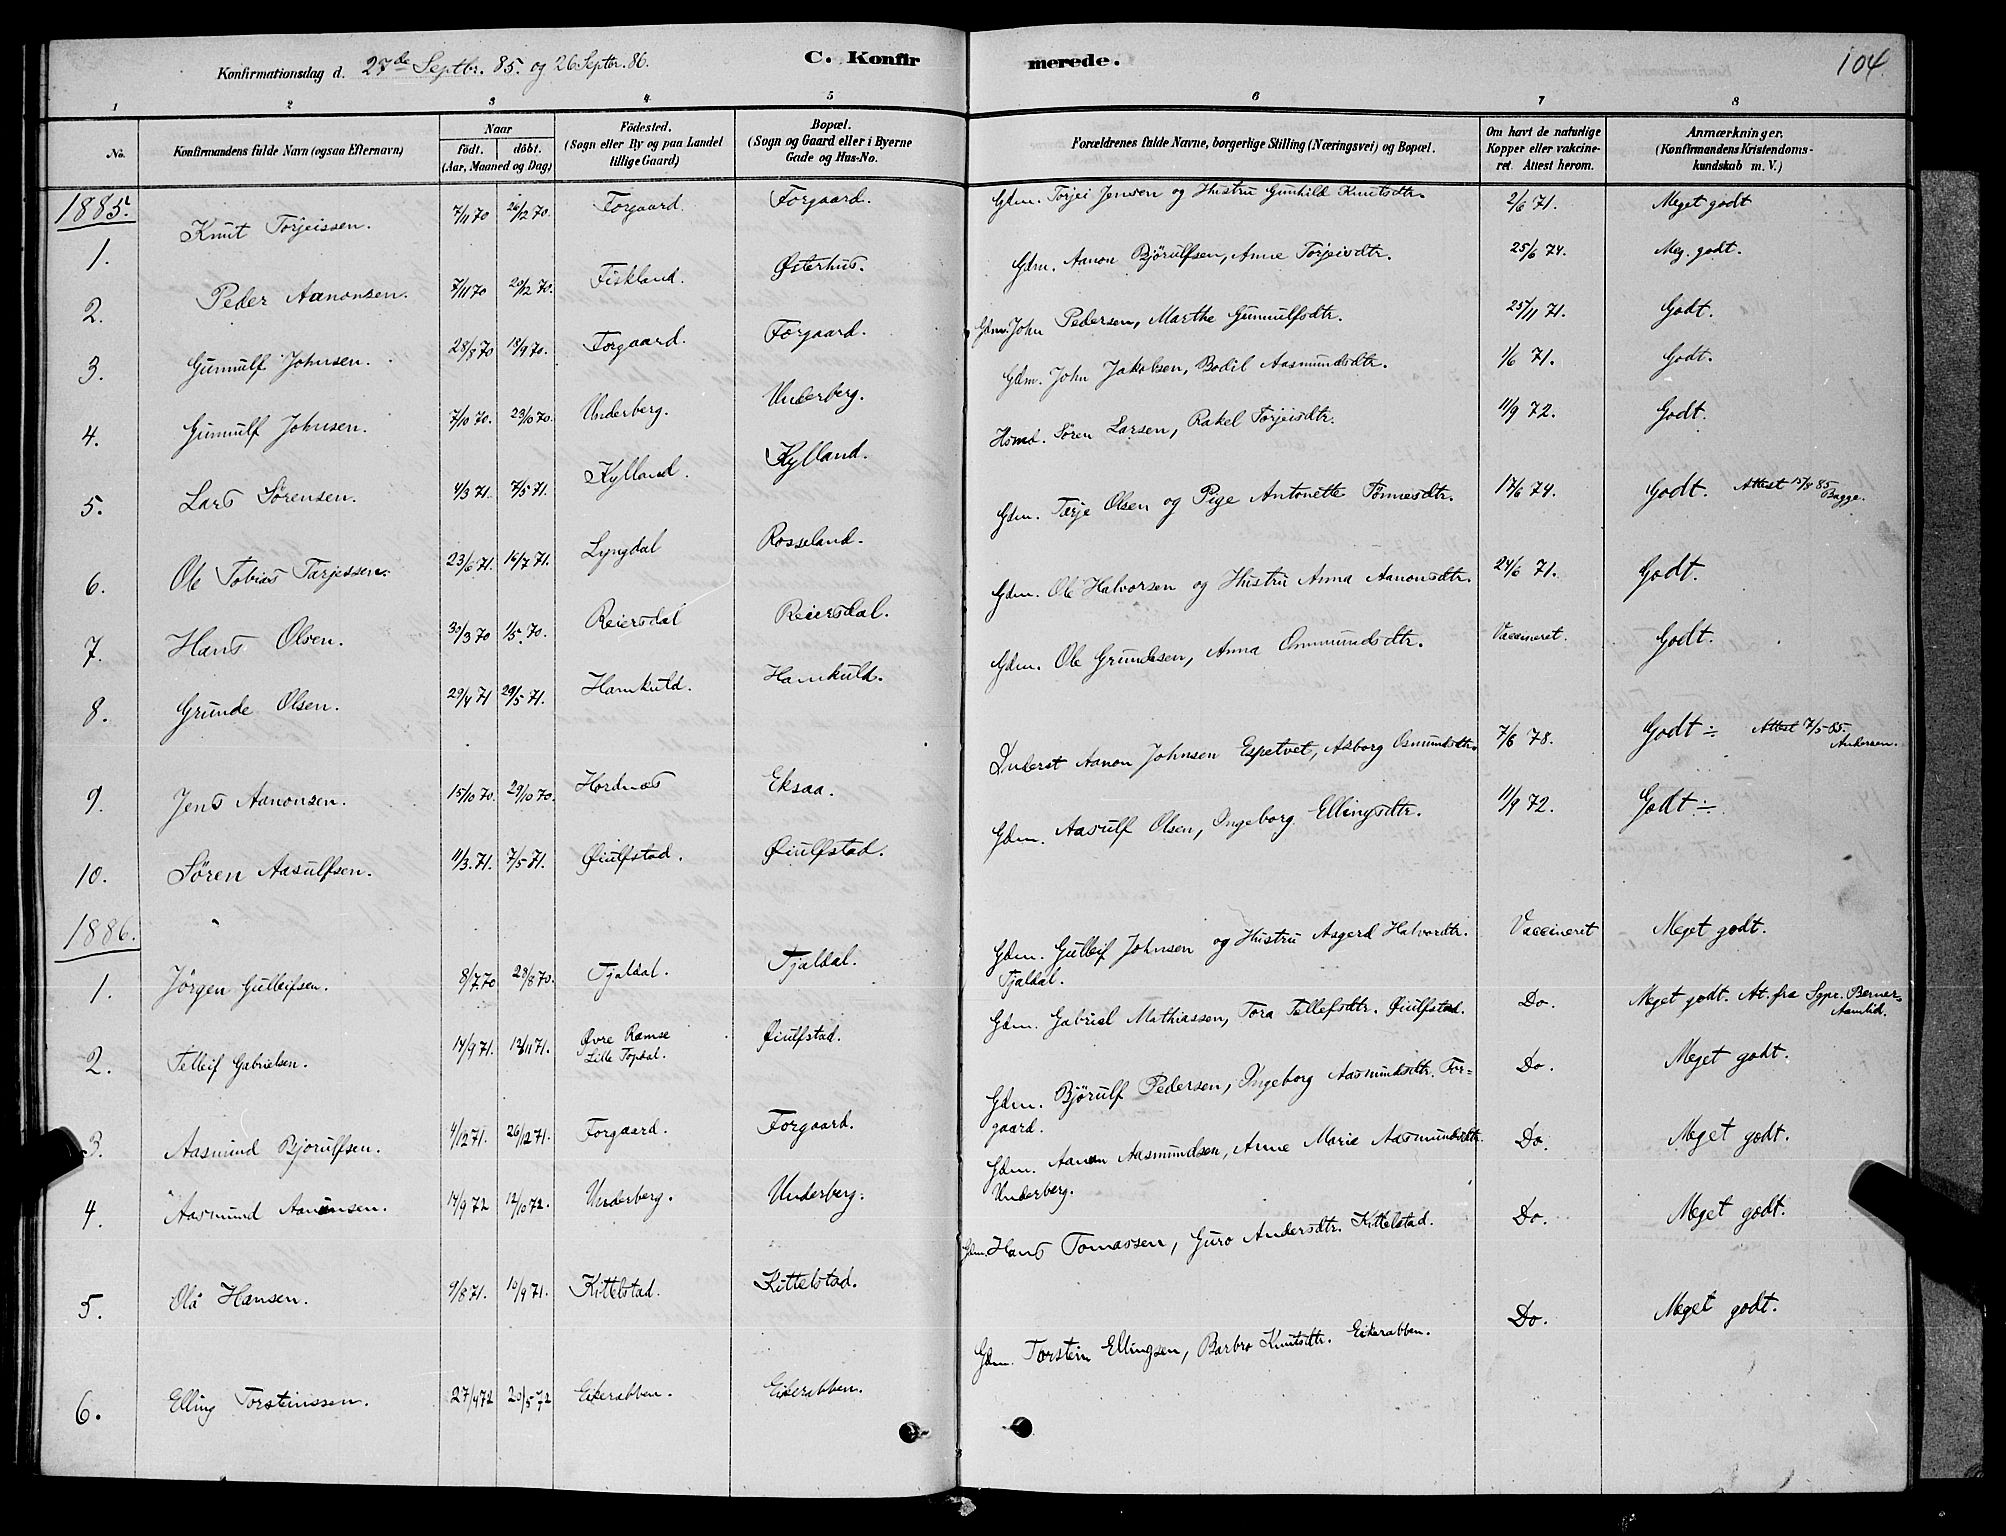 Konfirmationsdag d. 27de Septbr. 85. og 26 Septbr. 86.
C. Konfirmerede.
104.
1 2 3 4 5 6 7 8
No.
Konfirmandens fulde Navn (ogsaa Efternavn)
Naar
födt. döbt.
(Aar, Maaned og Dag)
Födested.
(Sogn eller By og paa Landet
tillige Gaard)
Bopæl.
(Sogn og Gaard eller i Byerne
Gade og Hus-No.
Forældrenes fulde Navne, borgerlige Stilling (Næringsvei) og Bopæl.
Om havt de naturlige
Kopper eller vakcine-
ret. Attest herom.
Anmærkninger.
(Konfirmandens Kristendoms-
kundskab m. V.)
1885.
1. Knut Torjeissen. 7/11 70 26/12 70. Forgaard. Forgaard. Gdm. Torjei Jensen og Hustru Gunhild Knutsdtr. 2/6 71. Meget godt
2. Peder Aanonsen. 7/11 70 20/12 70. Fiskland. Østerhus. Gdm. Aanon Bjørulfsen, Anne Torjeisdtr. 25/6 74. Meg. godt.
3. Gunnulf Johnsen. 28/8 70 18/9 70. Forgaard. Forgaard. Gdm. John Pedersen, Marthe Gunnulfsdtr. 25/11 71. Godt.
4. Gunnulf Johnsen. 7/10 70. 23/10 70. Underberg. Underberg. Gdm. John Jakobsen, Bodil Aasmundsdtr. 1/6 71. Godt.
5. Lars Sørensen. 4/3 71. 7/5 71. Kylland. Kylland. Hsmd. Sören Larsen, Rakel Torjeisdtr. 11/9 72. Godt.
6. Ole Tobias Tarjessen. 23/6 71. 16/7 71. Lyngdal Rosseland. Gdm. Tarje Olsen og Pige Antonette Tönnesdtr. 17/6 74. Godt. Attest 15/8 85
Bagge.
7. Hans Olsen. 30/3 70 1/5 70. Reiersdal Reiersdal. Gdm. Ole Halvorsen og Hustru Anna Aanonsdtr. 24/6 71. Godt.
8. Grunde Olsen. 29/4 71 29/5 71. Hamkuld. Hamkuld. Gdm. Ole Grundesen, Anna Ommundsdtr. Vaccineret. Godt.
9. Jens Aanonsen. 15/10 70. 29/10 70. Hordnæs Eksaa. Inderst Aanon Johnsen Espetvet, Asborg Osmundsdtr. 7/6 78. Godt ÷ Attest 7/5 85.
Andersen.
10. Sören Aasulfsen. 11/3. 71. 7/5 71. Øiulfstad. Øiulfstad. Gdm. Aasulf Olsen, Ingeborg Ellingsdtr. 11/9 72. Godt ÷
1886.
1. Jörgen Gulleifsen. 8/7 70 28/8 70. Tjaldal. Tjaldal. Gdm. Gulleif Johnsen og Hustru Asgerd Halvordtr.
Tjaldal. Vaccineret Meget godt.
2. Telleif Gabrielsen. 14/9 71. 13/11 71. Øvre Ramse
Lille Topdal. Øiulfstad. Gdm. Gabriel Mathiassen, Tora Tellefsdtr. Øiulfstad. Do. Meget godt. At. fra Sgpr. Berner-
Aamlid.
3. Aasmund Bjorulfsen. 4/12 71. 26/12 71. Forgaard. Forgaard. Gdm. Bjørulf Pedersen, Ingeborg Aasmundsdtr. For=
gaard. Do. Meget godt.
4. Aasmund Aanonsen. 14/9 72 12/10 72. Underberg. Underberg. Gdm. Aanon Aasmundsen, Anne Marie Aasmundsdtr.
Underberg. Do. Meget godt.
5. Ola Hansen. 9/8 71. 10/9 71. Kittelstad. Kittelstad. Gdm. Hans Tomassen, Guro Andersdtr. Kittelstad. Do. Meget godt.
6. Elling Torsteinssen. 27/4 72 20/5 72 Eikerabben. Eikerabben. Gdm. Torstein Ellingsen, Barbro Knutsdtr. Eikerabben. Do. Meget godt.